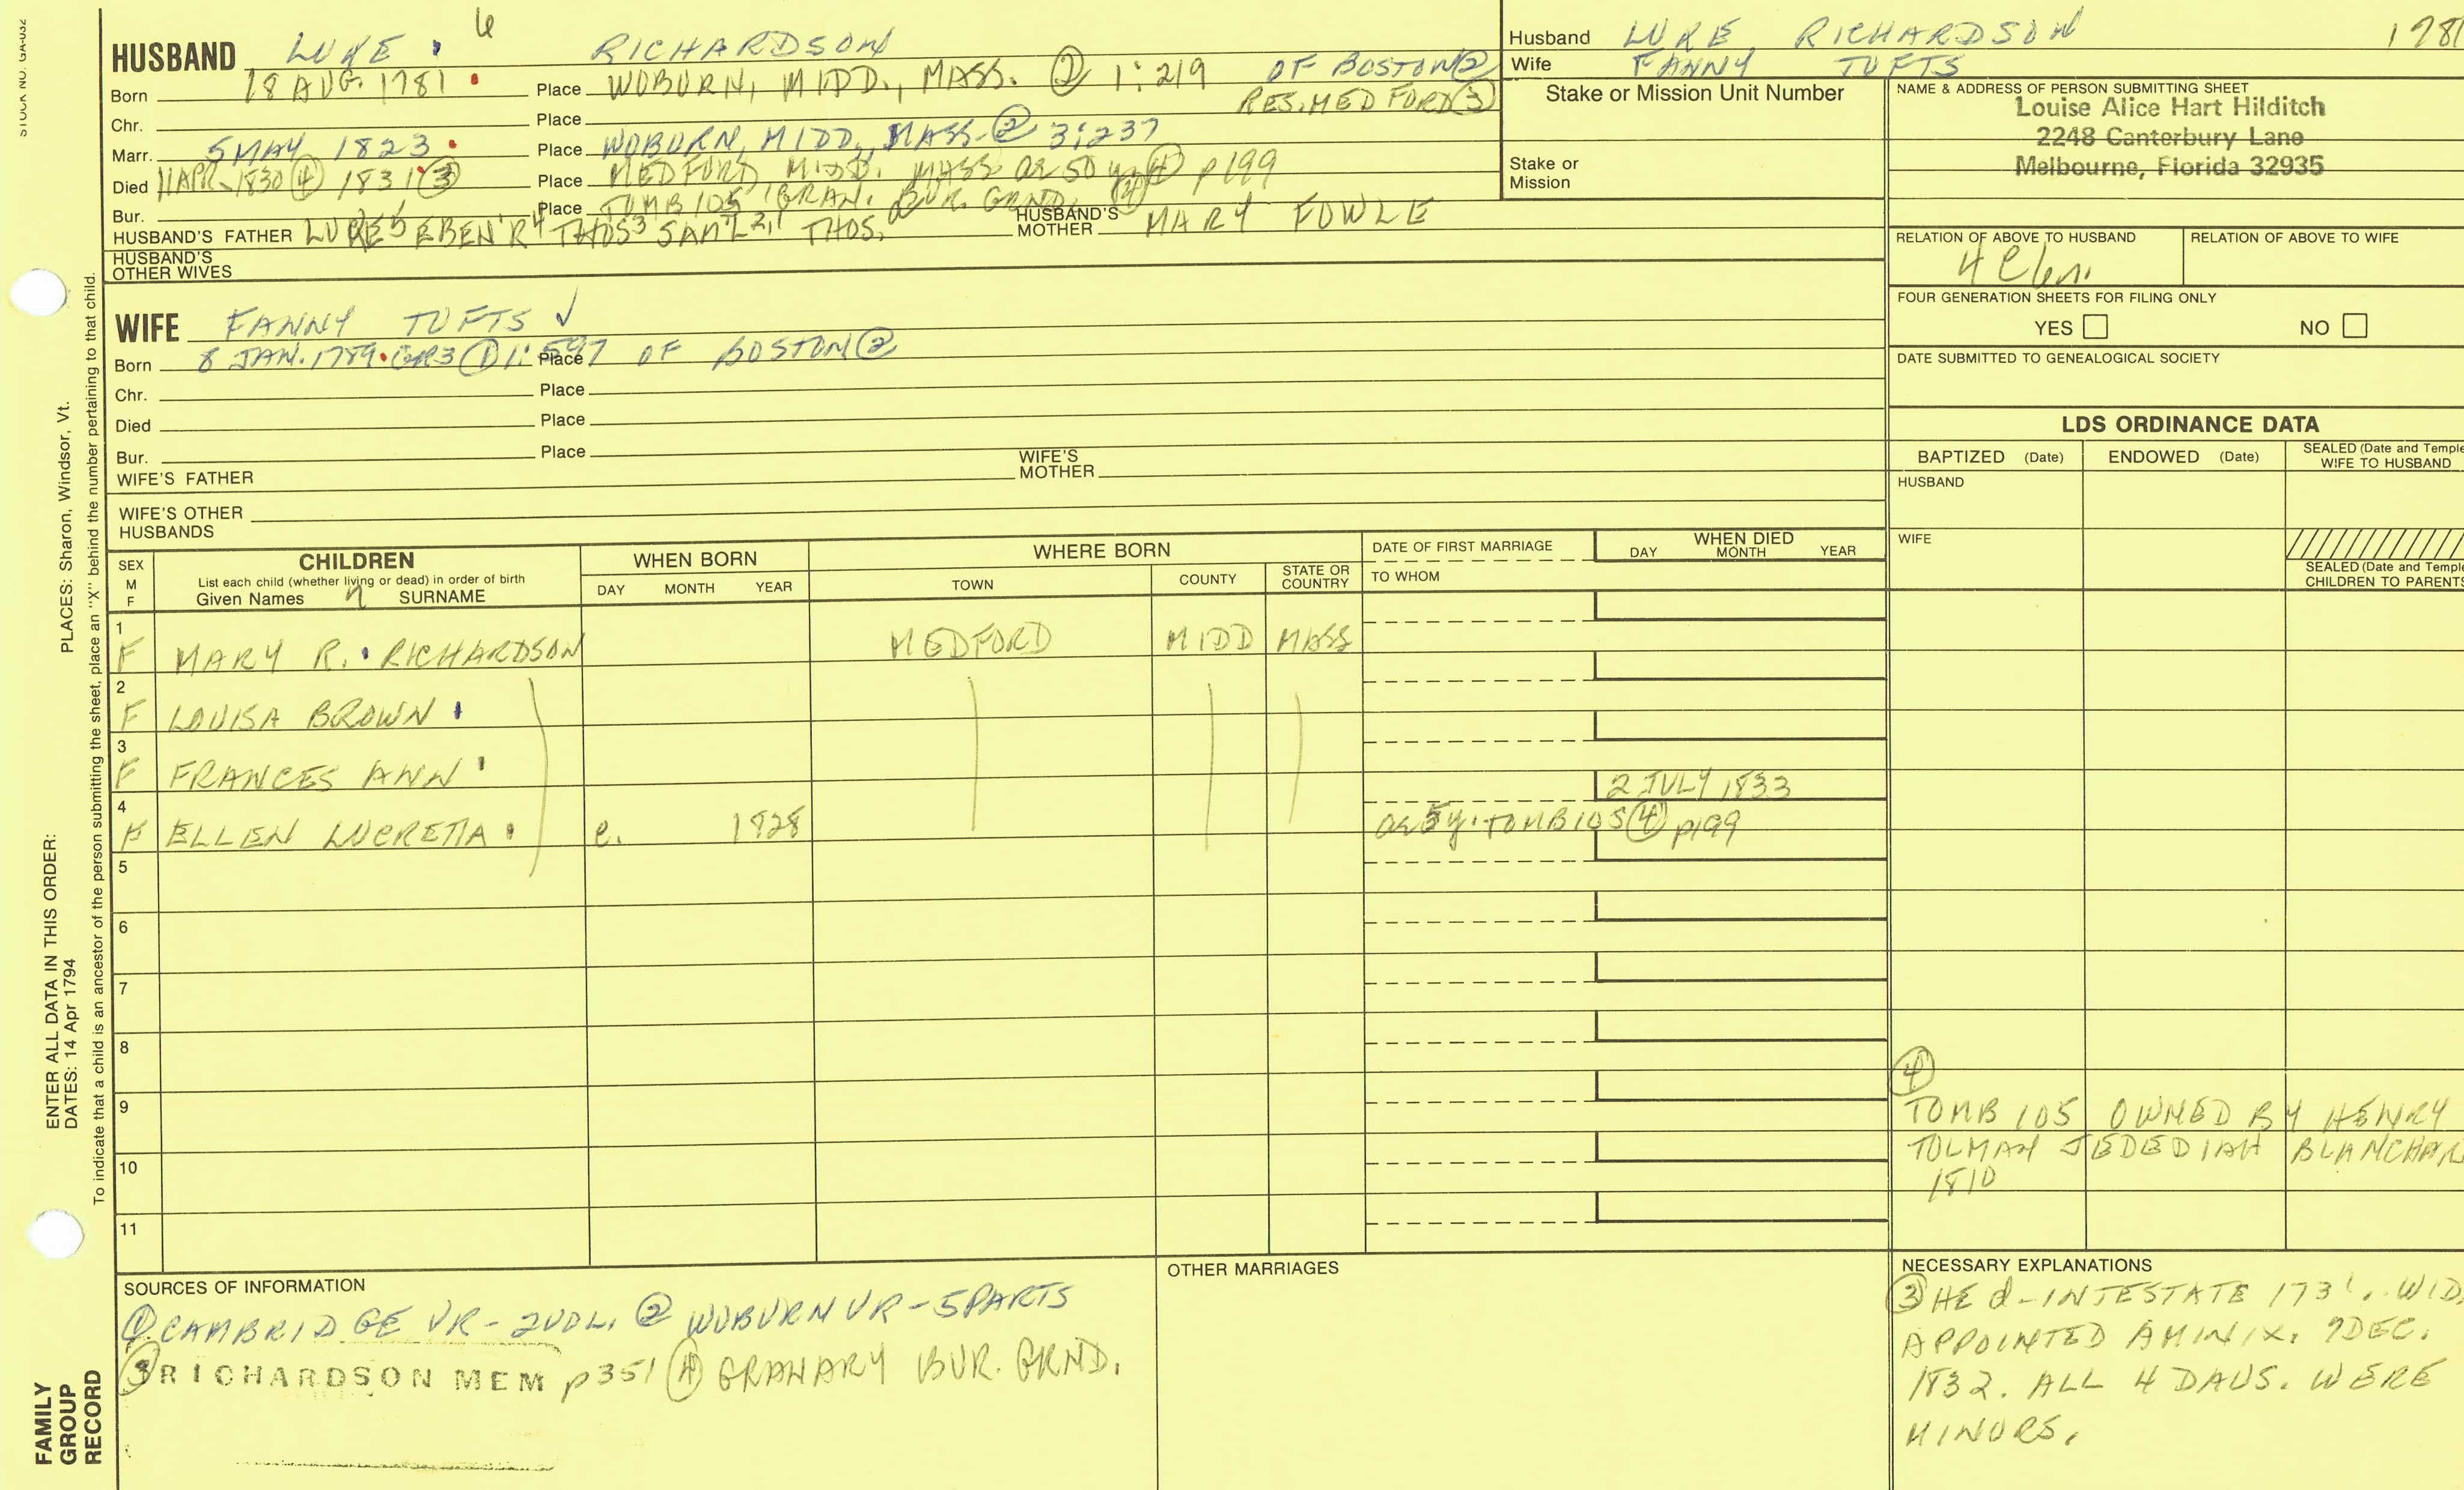 STOCK NO. GA-032
HUSBAND LUKE 6 RICHARDSON
Born 18 AUG. 1781 Place WOBURN, MIDD., MASS. ② 1:219 OF BOSTON②
RES. MEDFORD③
Chr. Place
Marr. 5 MAY 1823 Place WOBURN, MIDD, MASS-② 3:237
Died 11 APR-1830④ 1831③ Place MEDFORD, MIDD. MASS ae 50 y④ p199
Bur. Place TOMB 105 GRAN. BUR. GRND. ④
HUSBAND'S FATHER LUKE5 EBEN'R4 THOS3 SAM'L2,1 THOS. HUSBAND'S MOTHER MARY FOWLE
HUSBAND'S OTHER WIVES
WIFE FANNY TUFTS ✓
Born 8 JAN. 1789. GR3 ① 1:597 Place OF BOSTON②
Chr. Place
Died Place
Bur. Place
WIFE'S FATHER WIFE'S MOTHER
WIFE'S OTHER HUSBANDS
Husband LUKE RICHARDSON 1781
Wife FANNY TUFTS
Stake or Mission Unit Number
Stake or Mission
NAME & ADDRESS OF PERSON SUBMITTING SHEET
Louise Alice Hart Hilditch
2248 Canterbury Lane
Melbourne, Florida 32935
RELATION OF ABOVE TO HUSBAND RELATION OF ABOVE TO WIFE
FOUR GENERATION SHEETS FOR FILING ONLY
YES NO
DATE SUBMITTED TO GENEALOGICAL SOCIETY
LDS ORDINANCE DATA
BAPTIZED (Date) ENDOWED (Date) SEALED (Date and Temple WIFE TO HUSBAND
HUSBAND
WIFE
SEALED (Date and Temple CHILDREN TO PARENTS
SEX M F
CHILDREN
List each child (whether living or dead) in order of birth
Given Names SURNAME
WHEN BORN
DAY MONTH YEAR
WHERE BORN
TOWN COUNTY STATE OR COUNTRY
DATE OF FIRST MARRIAGE
TO WHOM
WHEN DIED
DAY MONTH YEAR
1 F MARY R. RICHARDSON MEDFORD MIDD MASS
2 F LOUISA BROWN
3 F FRANCES ANN
4 F ELLEN LUCRETIA c. 1828 2 JULY 1833
ae 5y. TOMB 105④ p199
5
6
7
8
9
10
11
④
TOMB 105 OWNED BY HENRY
TOLMAN JEDEDIAH BLANCHAR
1810
SOURCES OF INFORMATION
① CAMBRIDGE VR-2VOL. ② WOBURN VR-5PARTS
③ RICHARDSON MEM p351 ④ GRANARY BUR. GRND.
OTHER MARRIAGES
NECESSARY EXPLANATIONS
③ HE d-INTESTATE WID.
APPOINTED AMINIX. 7DEC.
1832. ALL 4 DAUS. WERE
MINORS.
PLACES: Sharon, Windsor, Vt.
ENTER ALL DATA IN THIS ORDER:
DATES: 14 Apr 1794
To indicate that a child is an ancestor of the person submitting the sheet, place an "X" behind the number pertaining to that child.
FAMILY
GROUP
RECORD